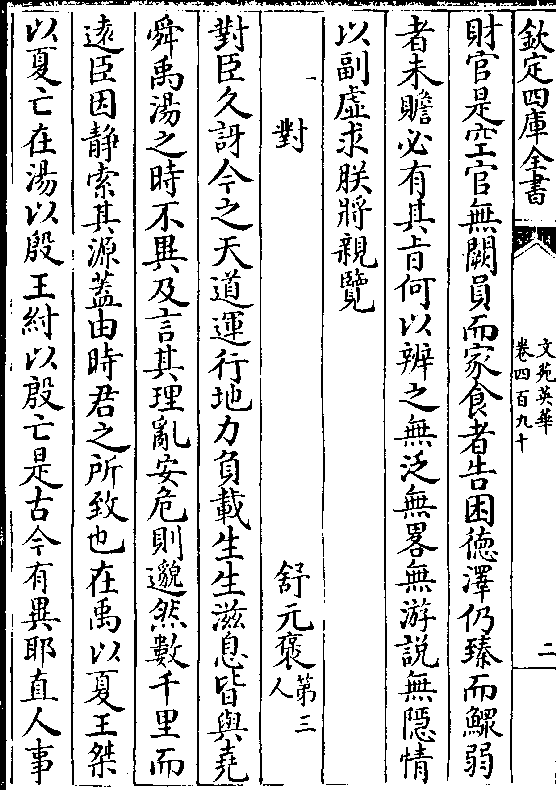 欽定四庫全書
文苑英華
卷四百九十
二
財官是空官無闕員而家食者告困徳澤仍臻而鰥弱
者未贍必有其旨何以辨之無泛無畧無游說無隱情
以副虚求朕將親覽
對
舒元褒第三人
對臣久訝今之天道運行地力負載生生滋息皆與堯
舜禹湯之時不異及言其理亂安危則邈然數千里而
遠臣因静索其源蓋由時君之所致也在禹以夏王桀
以夏亡在湯以殷王紂以殷亡是古今有異耶直人事